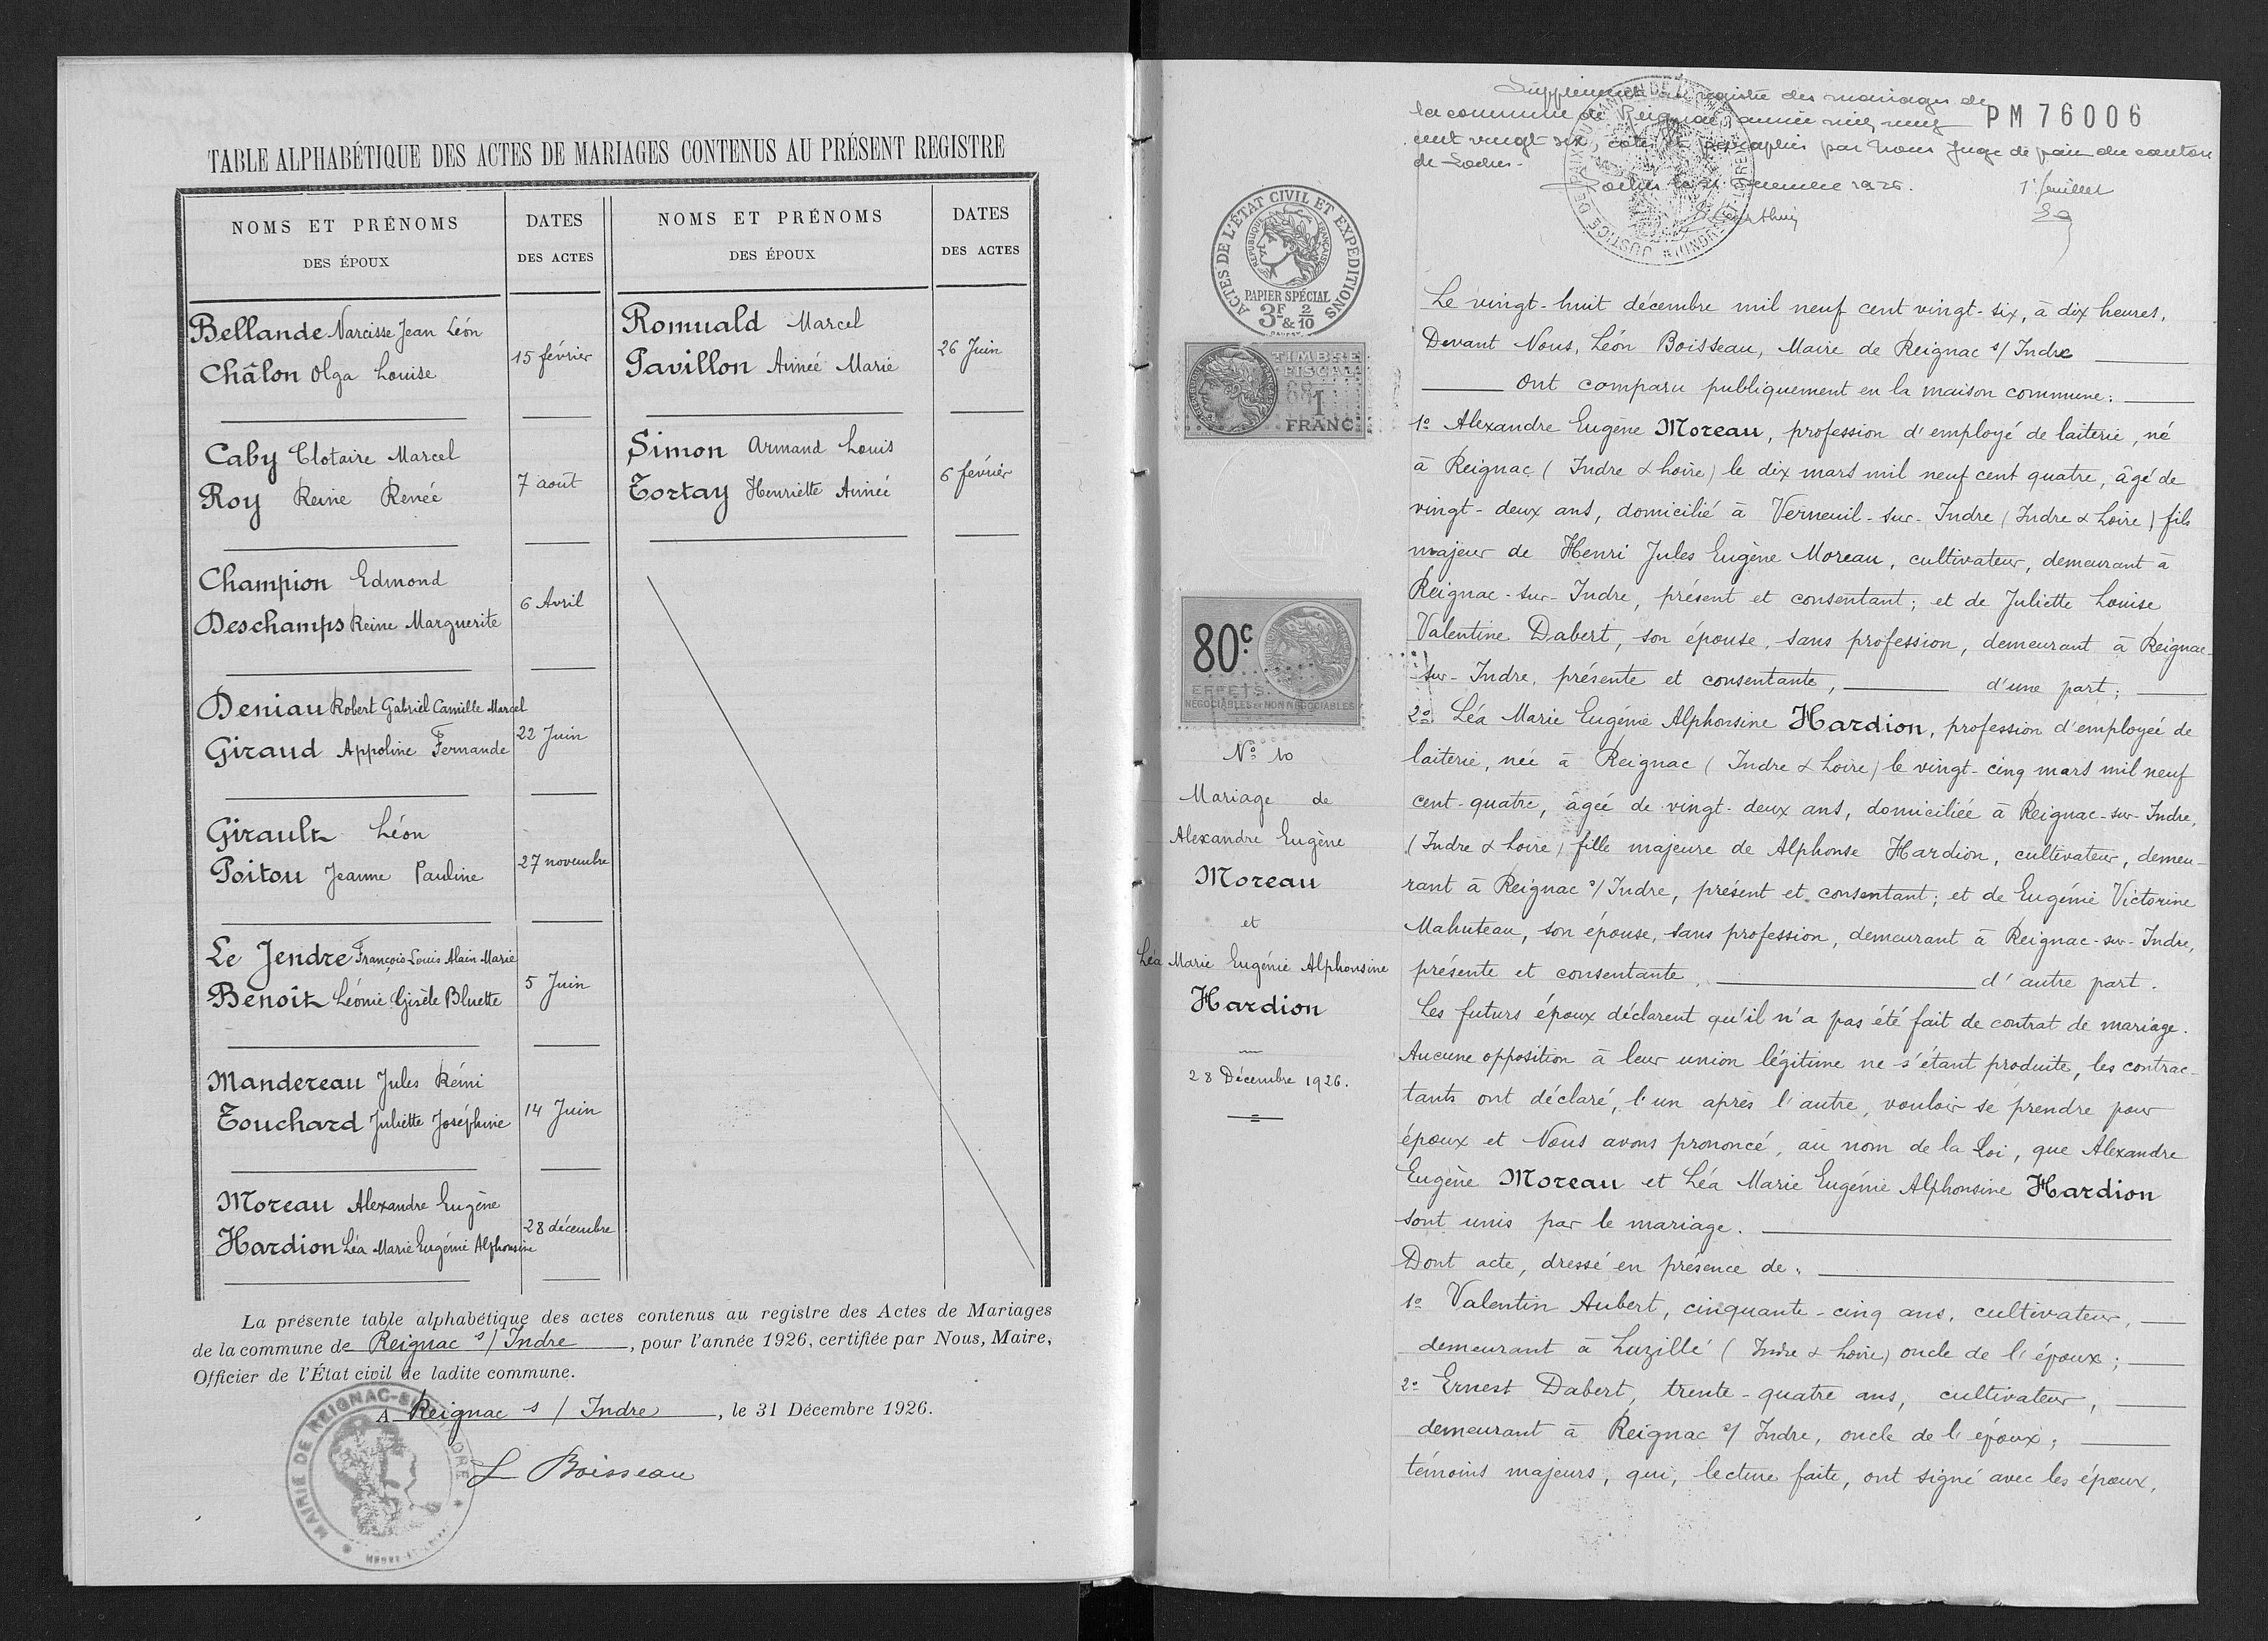 TABLE ALPHABÉTIQUE DES ACTES DE MARIAGES CONTENUS AU PRÉSENT REGISTRE
NOMS ET PRÉNOMS
DES ÉPOUX
DATES
DES ACTES
NOMS ET PRÉNOMS
DES ÉPOUX
DATES
DES ACTES
Bellande Narcisse Jean Léon
Châlon Olga Louise
15 février
Caby Clotaire Marcel
Roy Reine Renée
7 août
Champion Edmond
Deschamps Reine Marguerite
6 Avril
Deniau Robert Gabriel Camille Marcel
Giraud Appoline Fernande
22 Juin
Girault Léon
Poitou Jeanne Pauline
27 novembre
Le Jendre François Louis Alain Marie
Benoît Léonie Gisèle Bluette
5 Juin
Mandereau Jules Rémi
Touchard Juliette Joséphine
14 Juin
Moreau Alexandre Eugène
Hardion Léa Marie Eugénie Alphonsine
28 décembre
Romuald Marcel
Pavillon Aimée Marie
26 Juin
Simon Armand Louis
Tortay Henriette Aimée
6 février
La présente table alphabétique des actes contenus au registre des Actes de Mariages
de la commune de Reignac s/ Indre, pour l'année 1926, certifiée par Nous, Maire,
Officier de l'État civil de ladite commune.
A Reignac s/ Indre, le 31 Décembre 1926.
L Boisseau
MAIRIE DE REIGNAC-SUR-INDRE
Supplément au registre des mariages de
la commune de Reignac année mil neuf
cent vingt six, coté et paraphé par nous Juge de paix du canton
de Loches.
Loches le 21 Décembre 1926.
PM 76006
1er feuillet
JUSTICE DE PAIX
ACTES DE L'ÉTAT CIVIL ET EXPÉDITIONS
RÉPUBLIQUE FRANÇAISE
PAPIER SPÉCIAL
3F & 2/10
TIMBRE
FISCAL
1
FRANC
80c
EFFETS
NÉGOCIABLES ET NON NÉGOCIABLES
No 10
Mariage de
Alexandre Eugène
Moreau
et
Léa Marie Eugénie Alphonsine
Hardion
28 Décembre 1926.
Le vingt-huit décembre mil neuf cent vingt-six, à dix heures,
Devant Nous, Léon Boisseau, Maire de Reignac s/ Indre
Ont comparu publiquement en la maison commune:
1o Alexandre Eugène Moreau, profession d'employé de laiterie, né
à Reignac (Indre & Loire) le dix mars mil neuf cent quatre, âgé de
vingt-deux ans, domicilié à Verneuil-sur-Indre (Indre & Loire) fils
majeur de Henri Jules Eugène Moreau, cultivateur, demeurant à
Reignac-sur-Indre, présent et consentant; et de Juliette Louise
Valentine Dabert, son épouse, sans profession, demeurant à Reignac-
sur-Indre, présente et consentante, d'une part;
2o Léa Marie Eugénie Alphonsine Hardion, profession d'employée de
laiterie, née à Reignac (Indre & Loire) le vingt-cinq mars mil neuf
cent-quatre, âgée de vingt-deux ans, domiciliée à Reignac-sur-Indre,
(Indre & Loire) fille majeure de Alphonse Hardion, cultivateur, demeu-
rant à Reignac s/ Indre, présent et consentant; et de Eugénie Victorine
Mahuteau, son épouse, sans profession, demeurant à Reignac-sur-Indre,
présente et consentante, d'autre part.
Les futurs époux déclarent qu'il n'a pas été fait de contrat de mariage.
Aucune opposition à leur union légitime ne s'étant produite, les contrac-
tants ont déclaré, l'un après l'autre, vouloir se prendre pour
époux et Nous avons prononcé, au nom de la Loi, que Alexandre
Eugène Moreau et Léa Marie Eugénie Alphonsine Hardion
sont unis par le mariage.
Dont acte, dressé en présence de:
1o Valentin Aubert, cinquante-cinq ans, cultivateur,
demeurant à Luzillé (Indre & Loire) oncle de l'époux;
2o Ernest Dabert, trente-quatre ans, cultivateur,
demeurant à Reignac s/ Indre, oncle de l'époux;
témoins majeurs, qui, lecture faite, ont signé avec les époux,